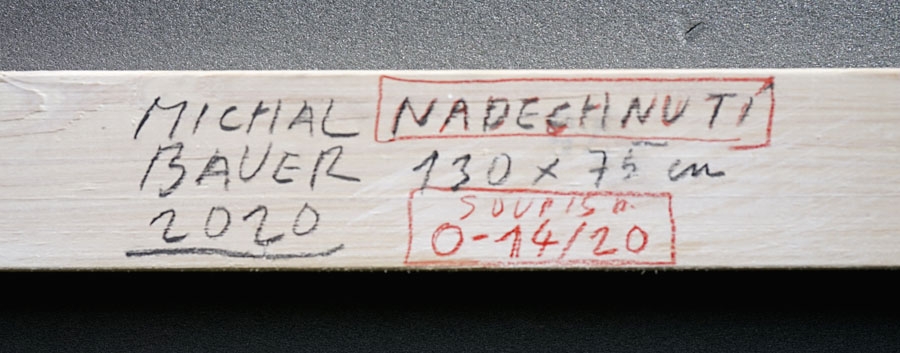 MICHAL NADECHNUTÍ
BAUER 130 x 75 cm
2020 SOUPIS Č.
O-14/20